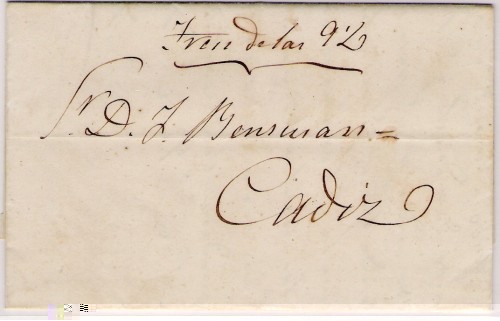 Tren de las 9½
Sr. D. J. Bensusan=
Cadiz